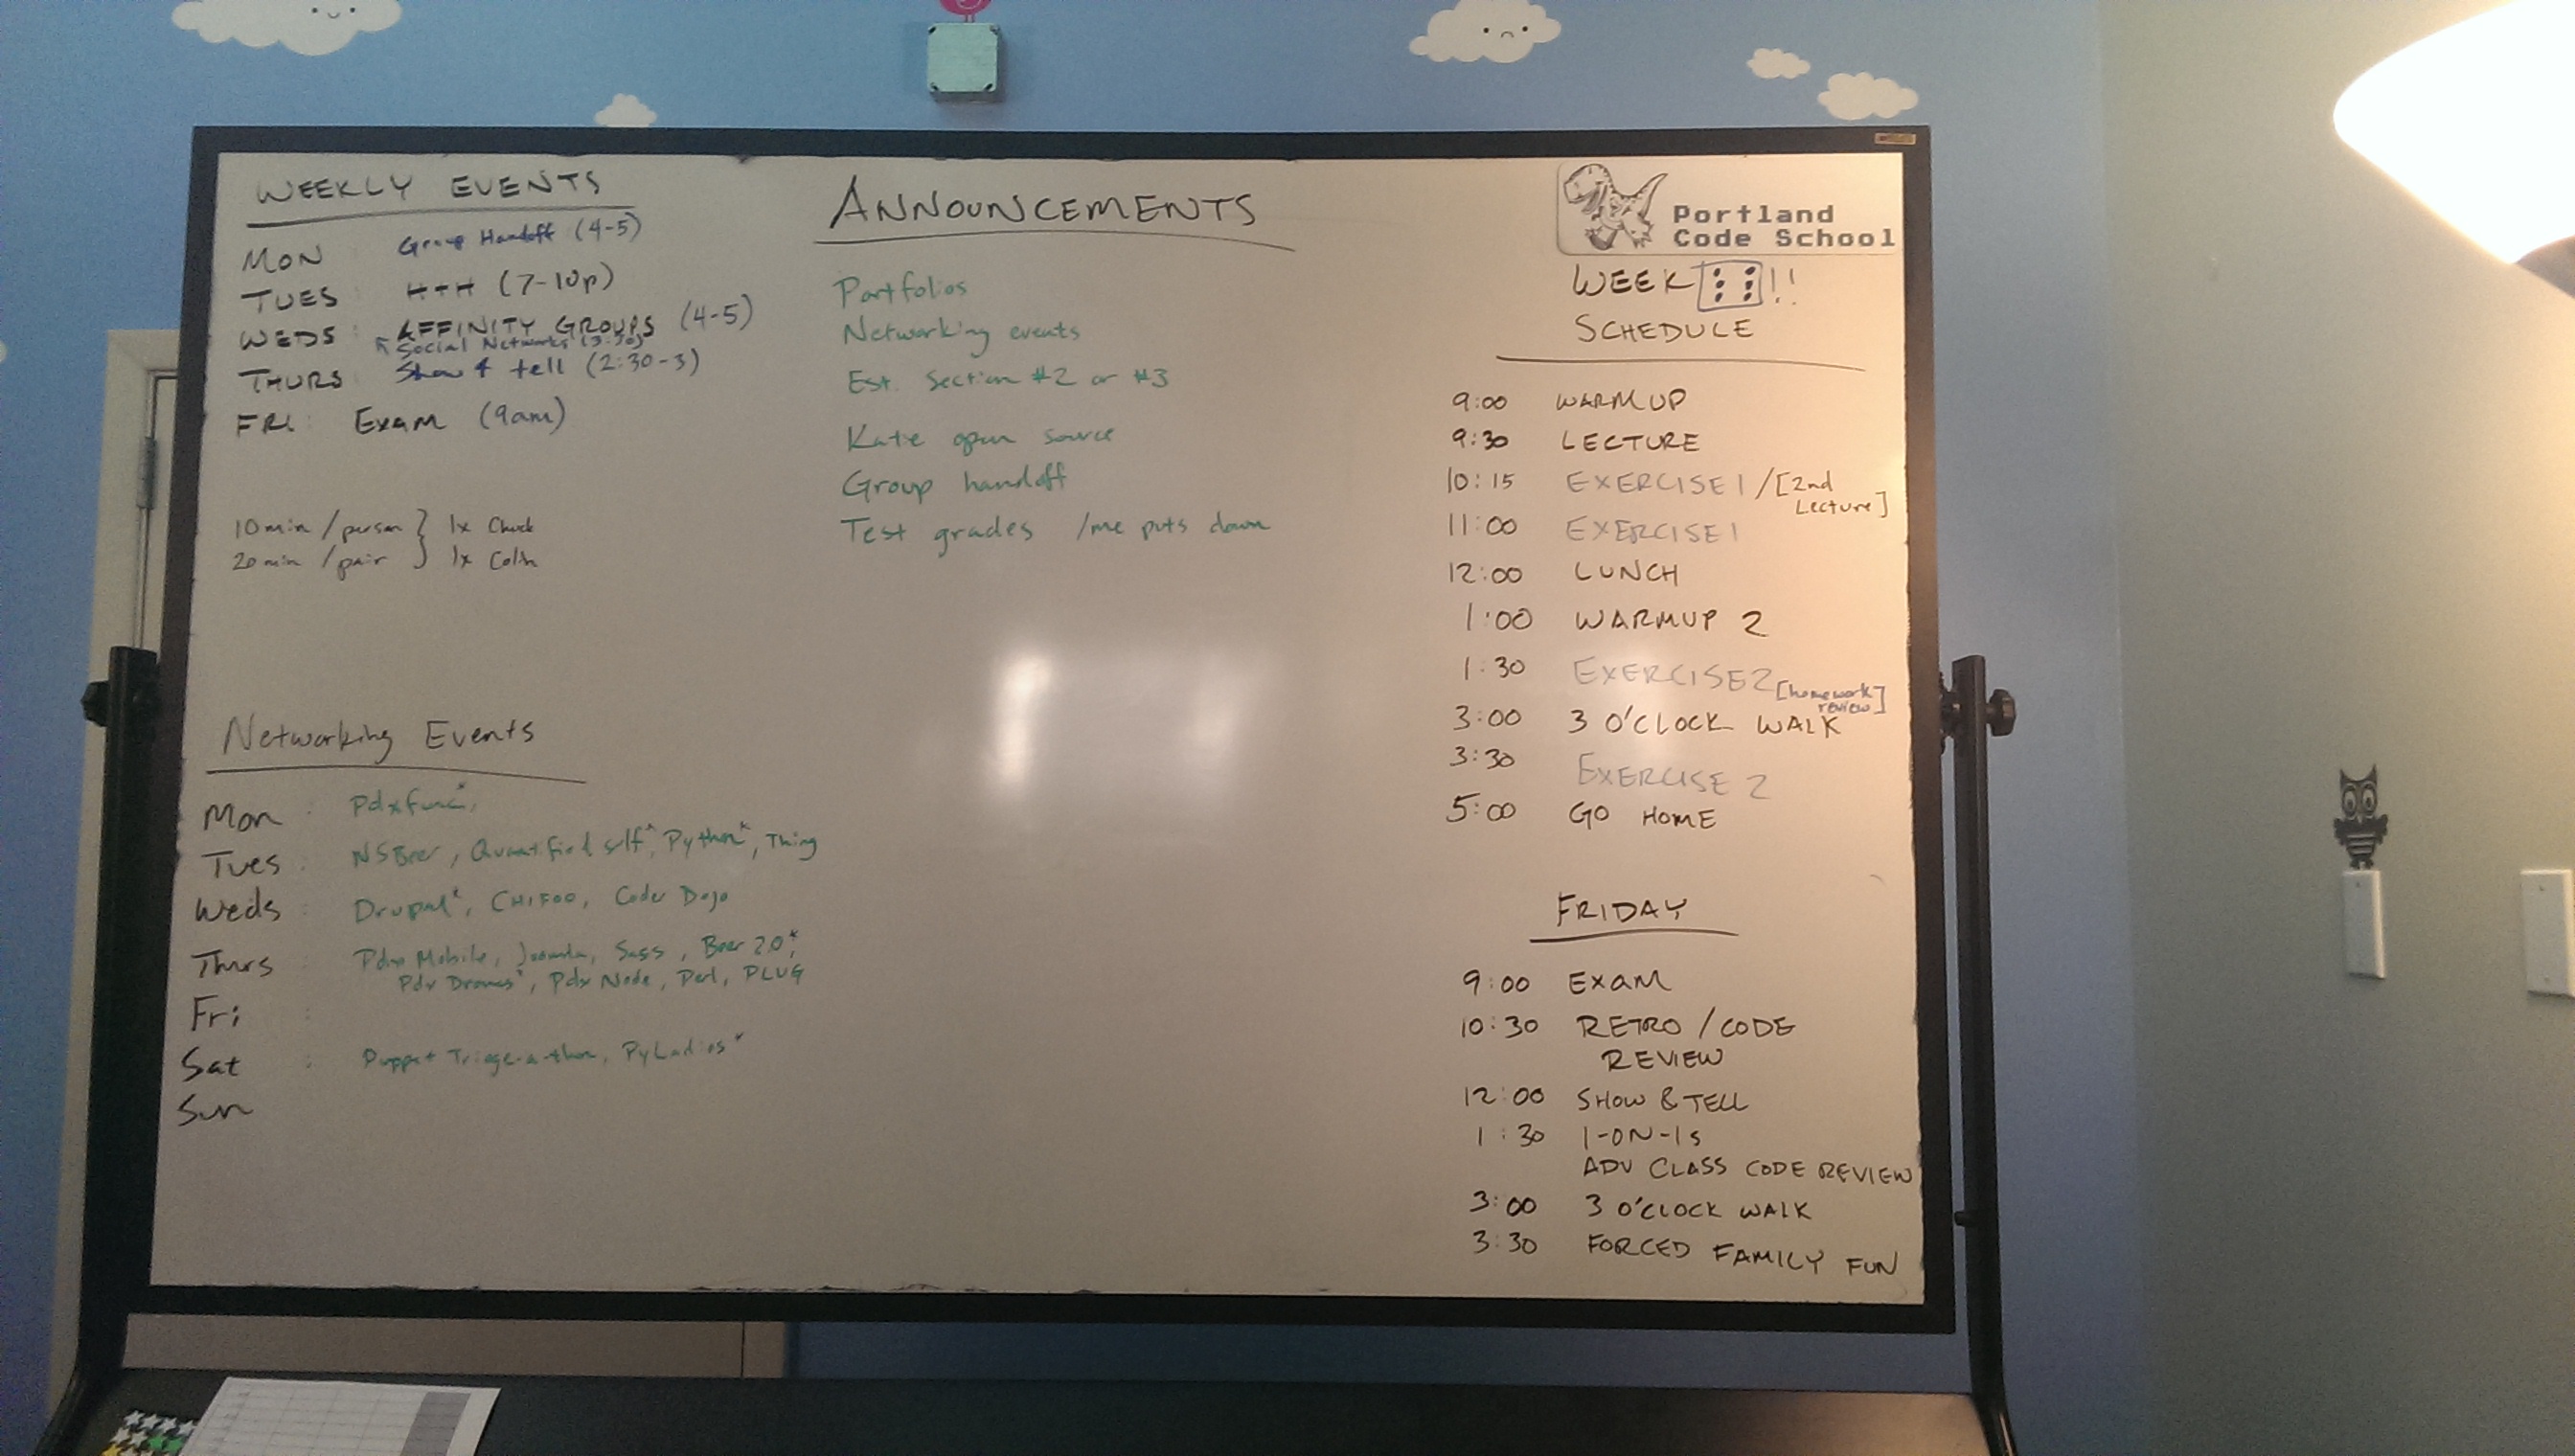 WEEKLY EVENTS
MON : Group Handoff (4-5)
TUES : H+H (7-10p)
WEDS : AFFINITY GROUPS (4-5)
Social Networks (3:30)
THURS : Show & tell (2:30-3)
FRI : EXAM (9am)
10 min / person } 1x Chuck
20 min / pair } 1x Colin
Networking Events
Mon : Pdxfunc*,
Tues : NSBeer, Quantified self*, Python*, Thing
Weds : Drupal*, CHIFOO, Coder Dojo
Thurs : Pdx Mobile, Joomla, Sass, Beer 2.0*,
Pdx Drones*, Pdx Node, Perl, PLUG
Fri :
Sat : Puppet Triage-a-thon, PyLadies*
Sun
ANNOUNCEMENTS
Portfolios
Networking events
Est. Section #2 or #3
Katie open source
Group handoff
Test grades /me puts down
Portland
Code School
WEEK !!
SCHEDULE
9:00 WARMUP
9:30 LECTURE
10:15 EXERCISE 1 / [2nd
Lecture]
11:00 EXERCISE 1
12:00 LUNCH
1:00 WARMUP 2
1:30 EXERCISE 2 [homework
review]
3:00 3 O'CLOCK WALK
3:30 EXERCISE 2
5:00 GO HOME
FRIDAY
9:00 EXAM
10:30 RETRO / CODE
REVIEW
12:00 SHOW & TELL
1:30 1-ON-1s
ADV CLASS CODE REVIEW
3:00 3 O'CLOCK WALK
3:30 FORCED FAMILY FUN